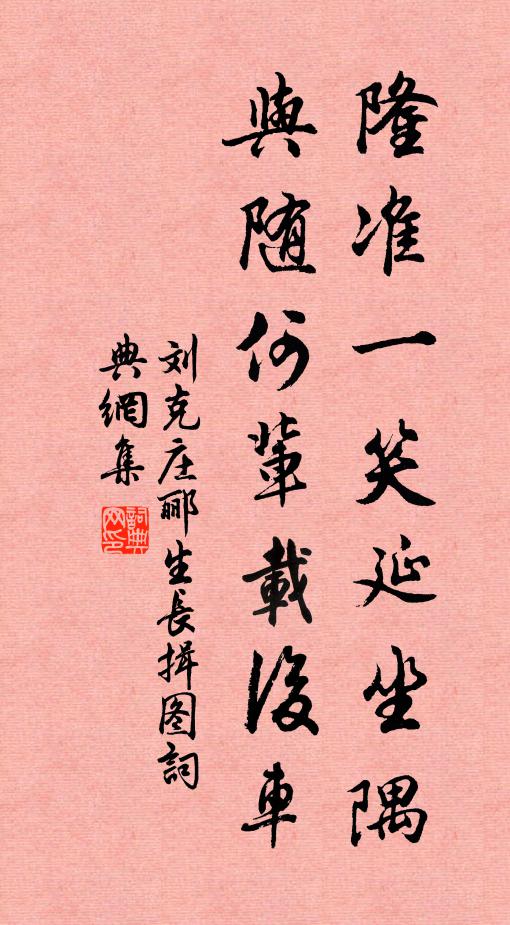 隆准一笑延坐隅
與随何輩載後車
刘克庄郦生長揖图詞
典網集
詞典网印